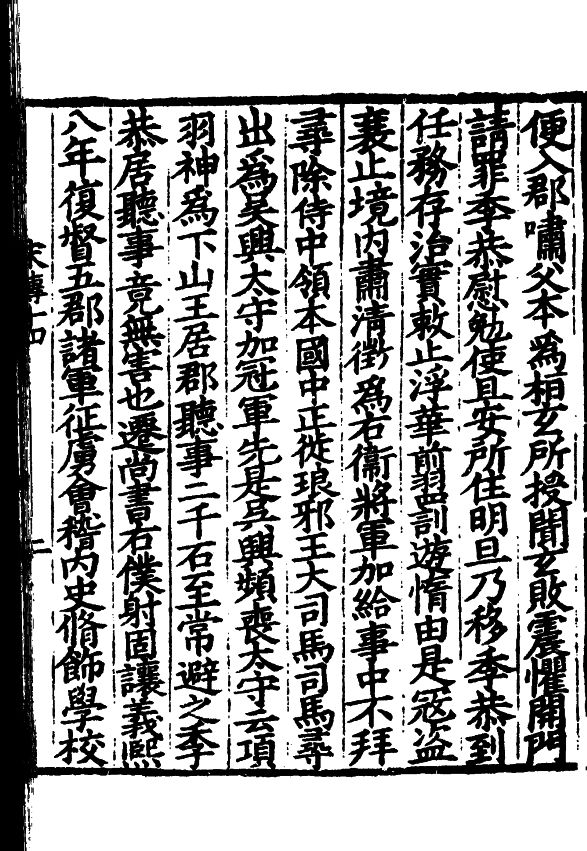 便入郡嘯父本爲桓玄所授聞玄敗震懼開門
請罪季恭慰勉使且安所住明旦乃移季恭到
任務存治實敕止浮華翦罰遊惰由是寇盜
衰止境内肅清徵爲右衞將軍加給事中不拜
尋除侍中領本國中正從琅邪王大司馬司馬尋
出爲吳興太守加冠軍先是吳興頻喪太守云項
羽神爲卞山王居郡聽事二千石至常避之季
恭居聽事竟無害也遷尚書右僕射固讓義熙
八年復督五郡諸軍征虜會稽内史脩飾學校
宋傳十四
二